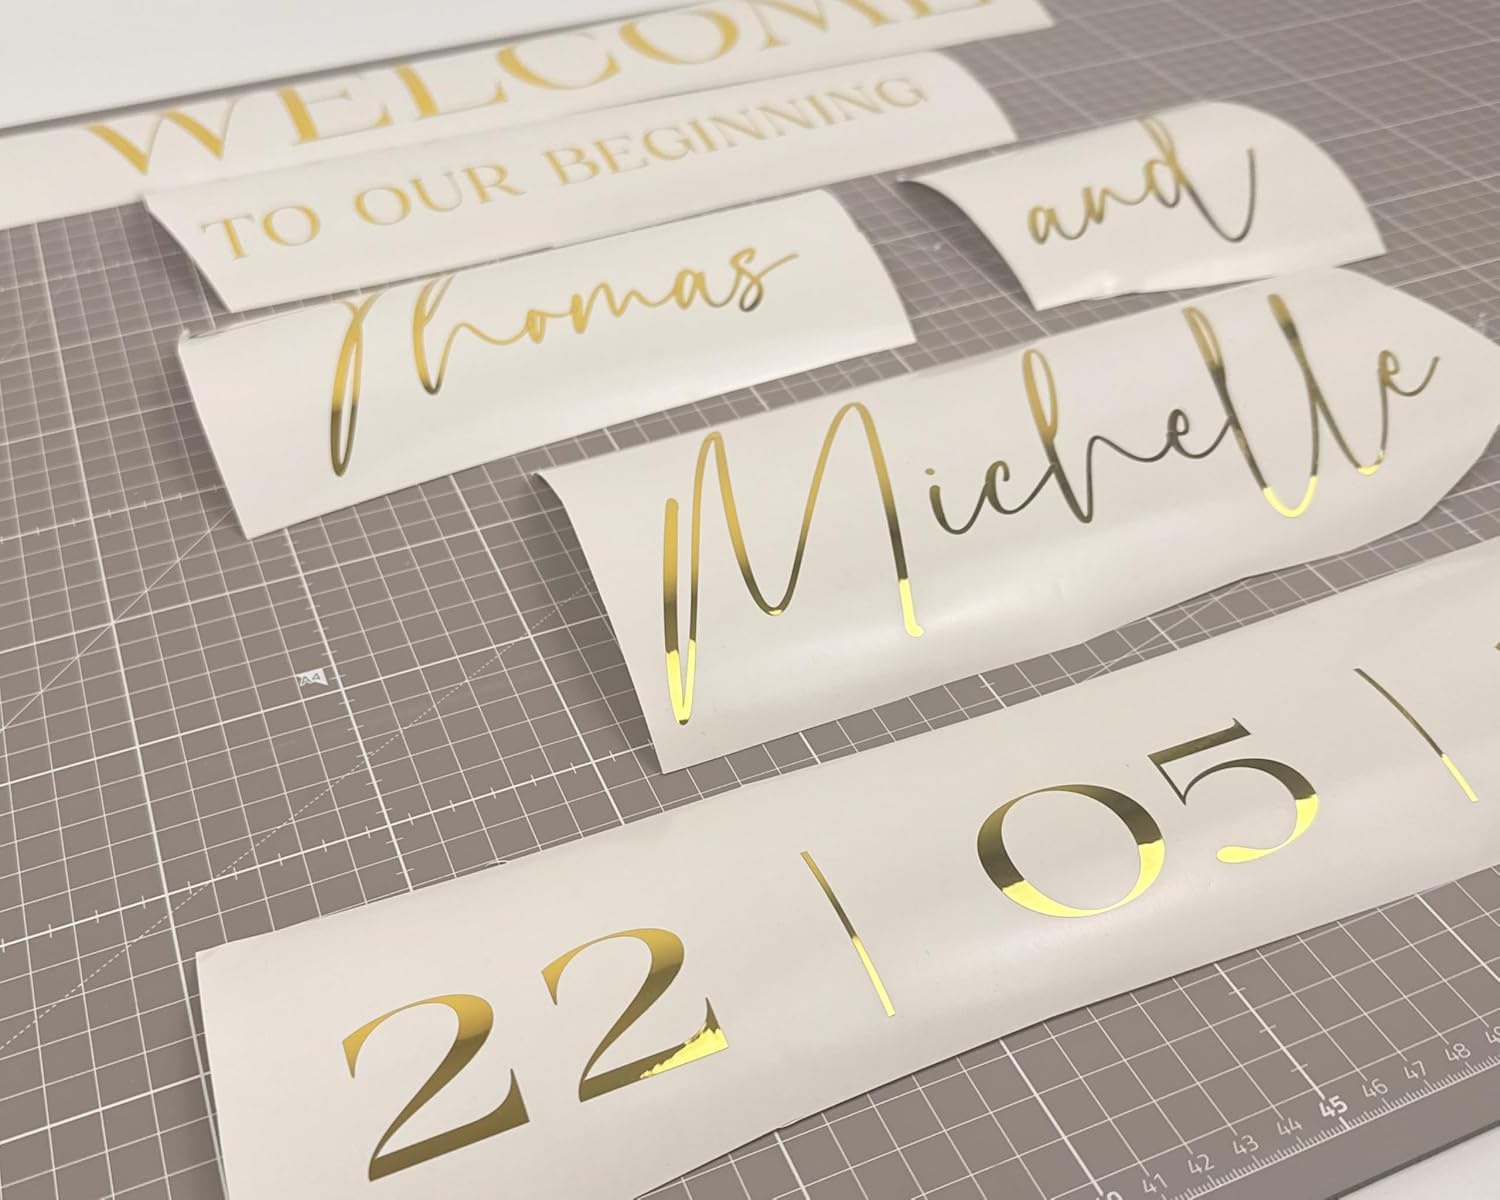 WELCOME
TO OUR BEGINNING
Thomas
and
Michelle
22 | 05 |
A4
41 42 43 44 45 46 47 48